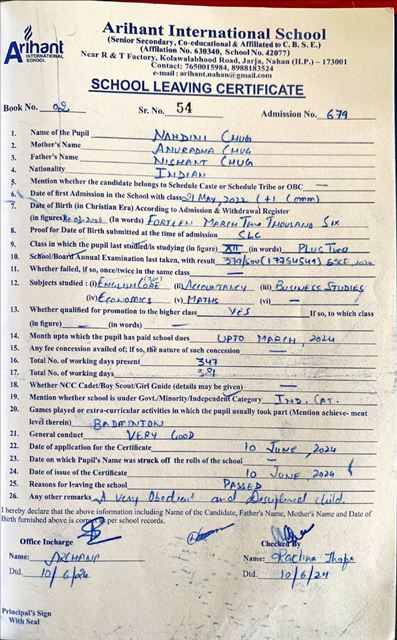 Arihant
INTERNATIONAL SCHOOL
Arihant International School
(Senior Secondary, Co-educational & Affiliated to C. B. S. E.)
(Affilation No. 630340, School No. 42077)
Near R & T Factory, Kolawalabhood Road, Jarja, Nahan (H.P.) – 173001
Contact: 7650015984, 8988183524
e-mail : arihant.nahan@gmail.com
SCHOOL LEAVING CERTIFICATE
Book No. 02 Sr. No. 54 Admission No. 679
1. Name of the Pupil NANDINI CHUG
2. Mother's Name ANURADHA CHUG
3. Father's Name NISHANT CHUG
4. Nationality INDIAN
5. Mention whether the candidate belongs to Schedule Caste or Schedule Tribe or OBC —
6. Date of first Admission in the School with class 21 May, 2022 (+1 Comm)
7. Date of Birth (in Christian Era) According to Admission & Withdrawal Register
(in figures) (In words) MARCH TWO THOUSAND SIX
8. Proof for Date of Birth submitted at the time of admission SLC
9. Class in which the pupil last studied/is studying (in figure) XII (in words) PLUS TWO
10. School/Board Annual Examination last taken, with result
11. Whether failed, if so, once/twice in the same class —
12. Subjects studied : (i) ENGLISH CORE (ii) ACCOUNTANCY (iii) BUSINESS STUDIES
(iv) ECONOMICS (v) MATHS (vi) —
13. Whether qualified for promotion to the higher class YES If so, to which class
(in figure) — (in words) —
14. Month upto which the pupil has paid school dues UPTO MARCH, 2024
15. Any fee concession availed of; if so, the nature of such concession —
16. Total No. of working days present 347
17. Total No. of working days
18. Whether NCC Cadet/Boy Scout/Girl Guide (details may be given) —
19. Mention whether school is under Govt./Minority/Independent Category IND. CAT.
20. Games played or extra-curricular activities in which the pupil usually took part (Mention achieve- ment
level therein) BADMINTON
21. General conduct VERY GOOD
22. Date of application for the Certificate 10 JUNE, 2024
23. Date on which Pupil's Name was struck off the rolls of the school —
24. Date of issue of the Certificate 10 JUNE, 2024
25. Reasons for leaving the school PASSED
26. Any other remarks A very Obedient and Disciplined child.
I hereby declare that the above information including Name of the Candidate, Father's Name, Mother's Name and Date of
Birth furnished above is correct as per school records.
Office Incharge Checked By
Name: ARCHANA Name: Rachna Thapa
Dtd. 10/6/24 Dtd. 10/6/24
Principal's Sign
With Seal